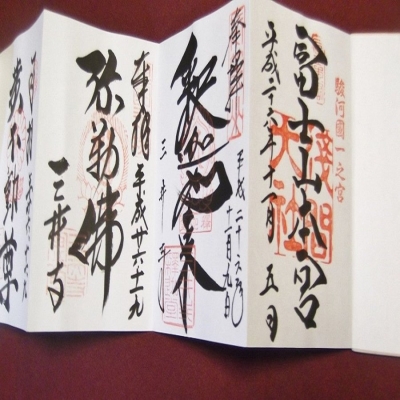 駿河國一之宮
富士山本宮
淺間大社
平成二十六年十一月五日
奉拝
釈迦如来
平成二十六年
十一月九日
三井寺
奉拝
平成廿六十一九
弥勒佛
三井寺
黄不動尊